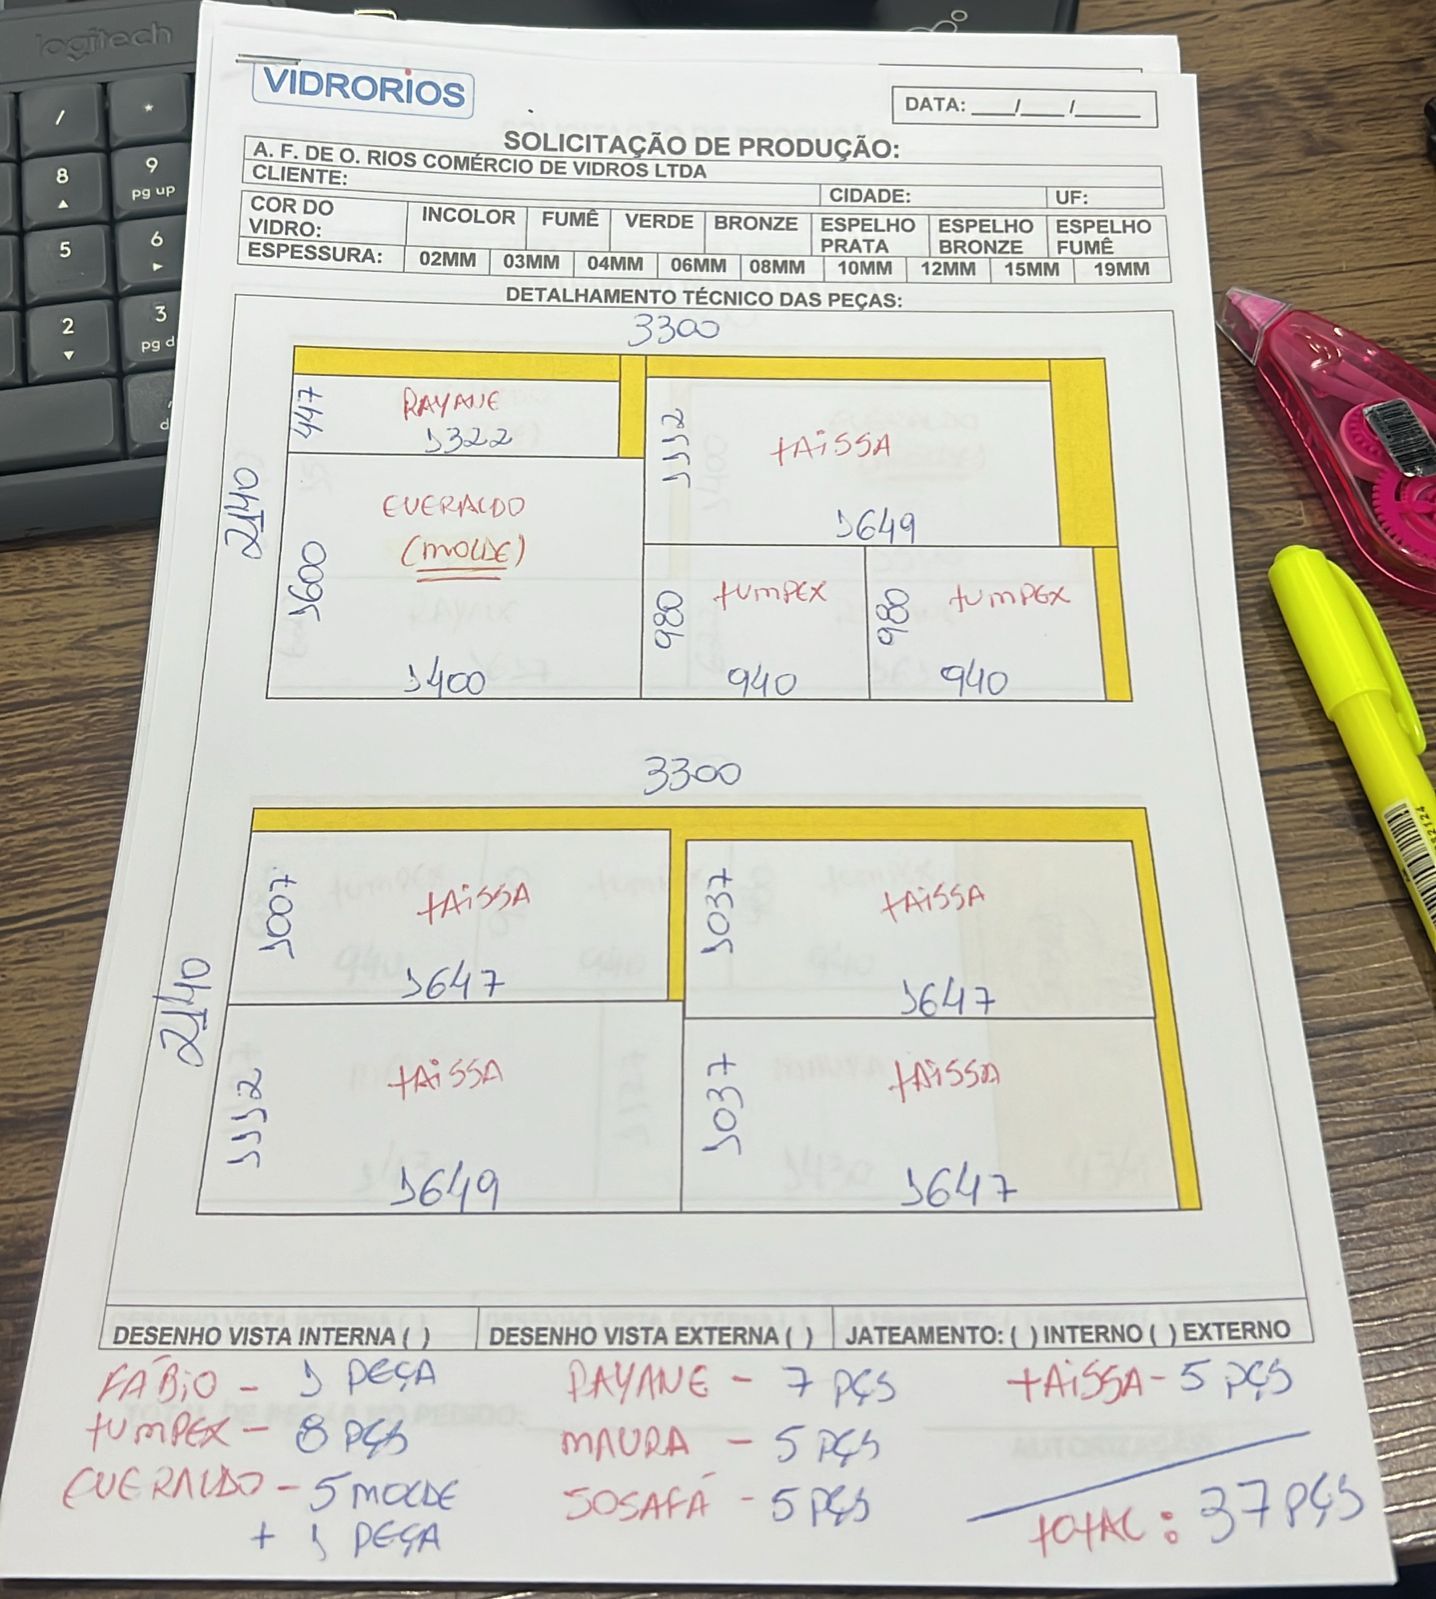 logitech
/
*
8
9
pg up
5
6
2
3
pg d
VIDRORIOS
DATA: ___/___/_____
SOLICITAÇÃO DE PRODUÇÃO:
A. F. DE O. RIOS COMÉRCIO DE VIDROS LTDA
CLIENTE: CIDADE: UF:
COR DO VIDRO: INCOLOR FUMÊ VERDE BRONZE ESPELHO PRATA ESPELHO BRONZE ESPELHO FUMÊ
ESPESSURA: 02MM 03MM 04MM 06MM 08MM 10MM 12MM 15MM 19MM
DETALHAMENTO TÉCNICO DAS PEÇAS:
3300
2140
447
RAYANE
1322
1112
TAISSA
1649
1600
EVERALDO
(MOLDE)
1400
980
TUMPEX
940
980
TUMPEX
940
3300
2140
1007
TAISSA
1647
1037
TAISSA
1647
1112
TAISSA
1649
1037
TAISSA
1647
DESENHO VISTA INTERNA ( ) DESENHO VISTA EXTERNA ( ) JATEAMENTO: ( ) INTERNO ( ) EXTERNO
FÁBIO - 1 PEÇA RAYANE - 7 PÇS TAISSA - 5 PÇS
TUMPEX - 8 PÇS MAURA - 5 PÇS
EVERALDO - 5 MOLDE JOSAFÁ - 5 PÇS TOTAL: 37 PÇS
+ 1 PEÇA